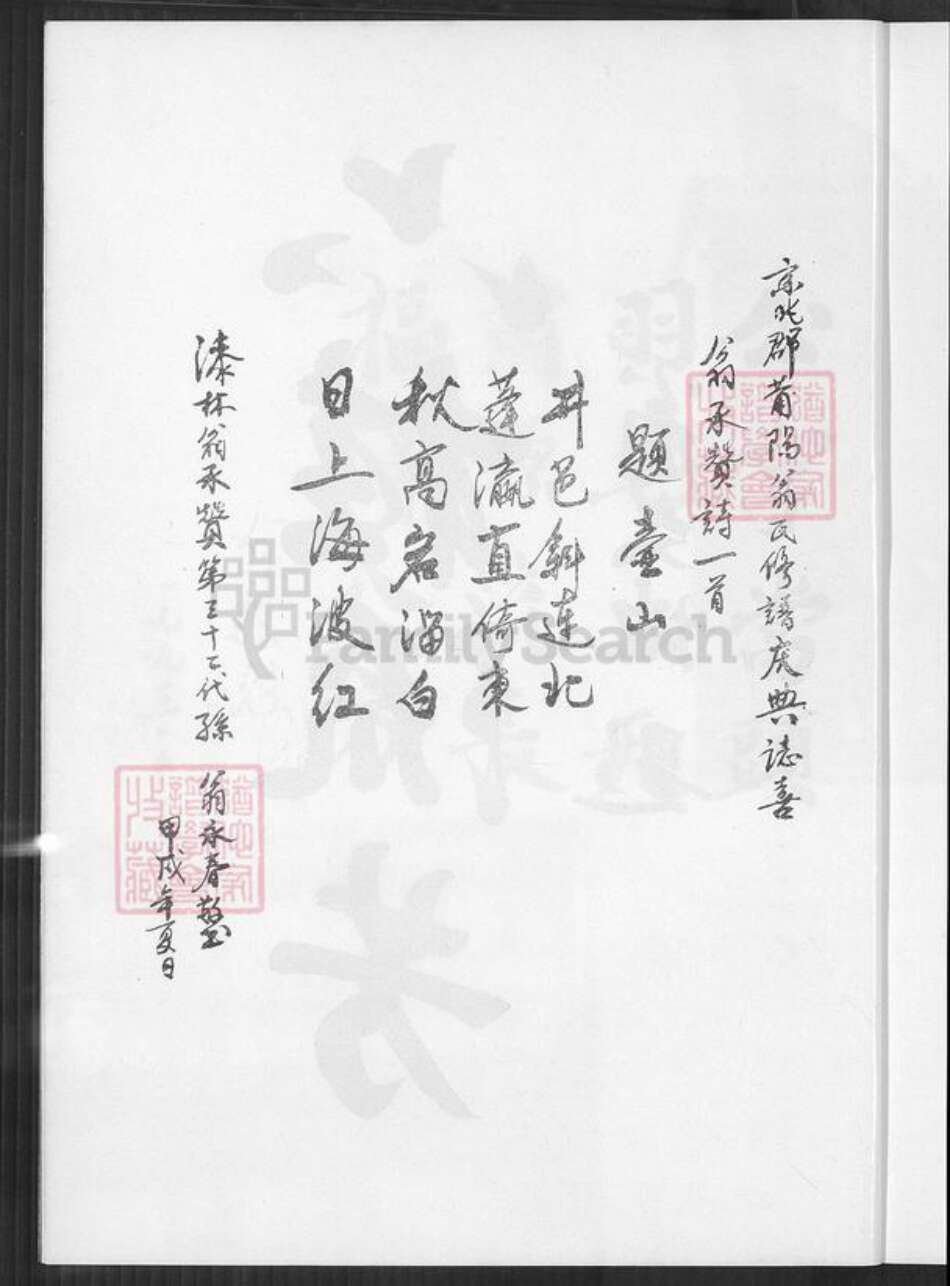 京兆郡莆陽翁氏修譜慶典誌喜
翁承贊詩一首
題壺山
井邑斜連北
蓬瀛直倚東
秋高岩溜白
日上海波紅
漆林翁承贊第三十六代孫 翁永春敬書
甲戌年夏日
FamilySearch